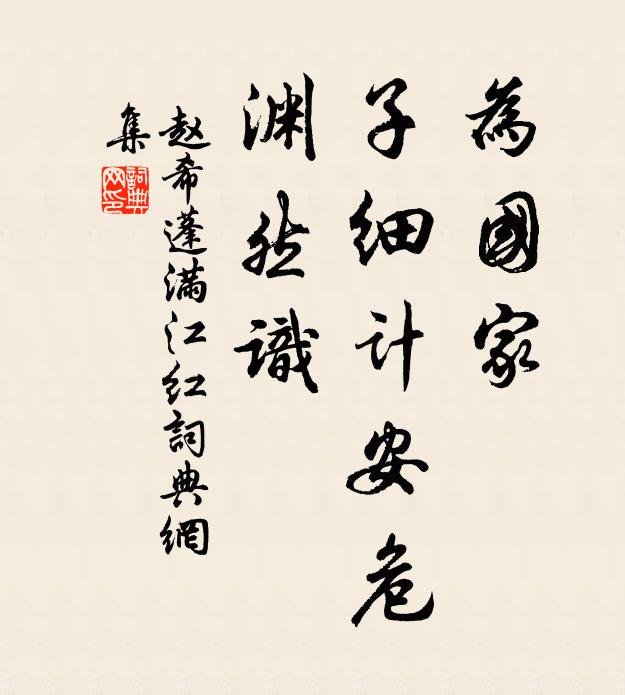 為國家
子细计安危
渊然識
赵希蓬满江红詞典網
集
詞典
网印